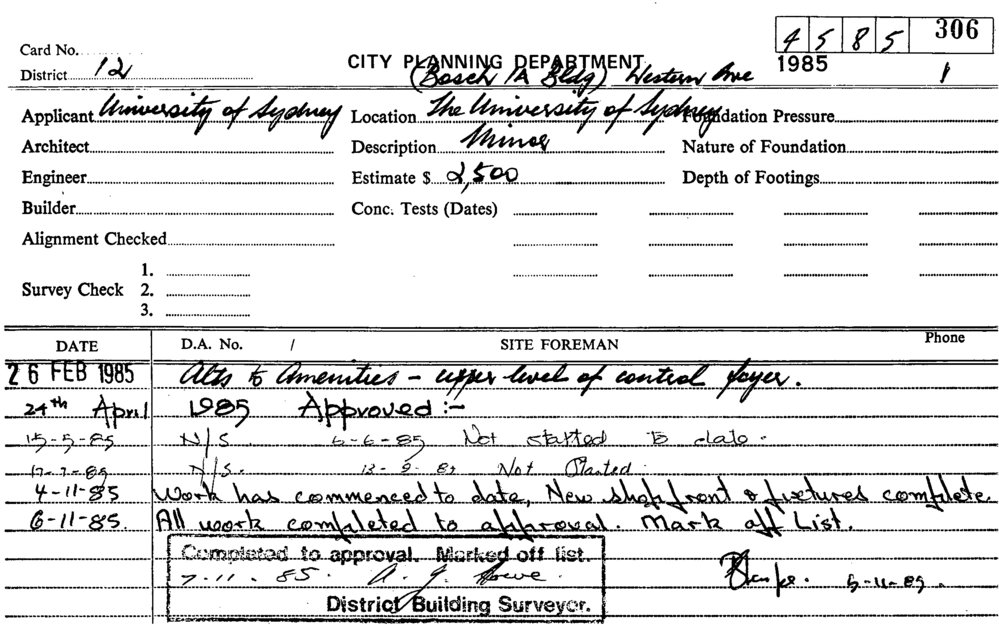 4 5 8 5 306
Card No.
CITY PLANNING DEPARTMENT
1985
District 12 (Bosch 1A Bldg) Western Ave 1
Applicant University of Sydney Location The University of Sydney Foundation Pressure
Architect Description Minor Nature of Foundation
Engineer Estimate $ 2,500 Depth of Footings
Builder Conc. Tests (Dates)
Alignment Checked
1.
Survey Check 2.
3.
DATE D.A. No. / SITE FOREMAN Phone
26 FEB 1985 Alts to Amenities - upper level of control foyer.
24th April 1985 Approved :-
15-5-85 N/S 6-6-85 Not started to date.
17-7-85 N/S. 13-8-85 Not Started.
4-11-85 Work has commenced to date, New shopfront & fixtures complete
6-11-85. All work completed to approval. Mark off List.
Completed to approval. Marked off list.
7.11.85. A. J. Rowe.
5-11-85.
District Building Surveyor.